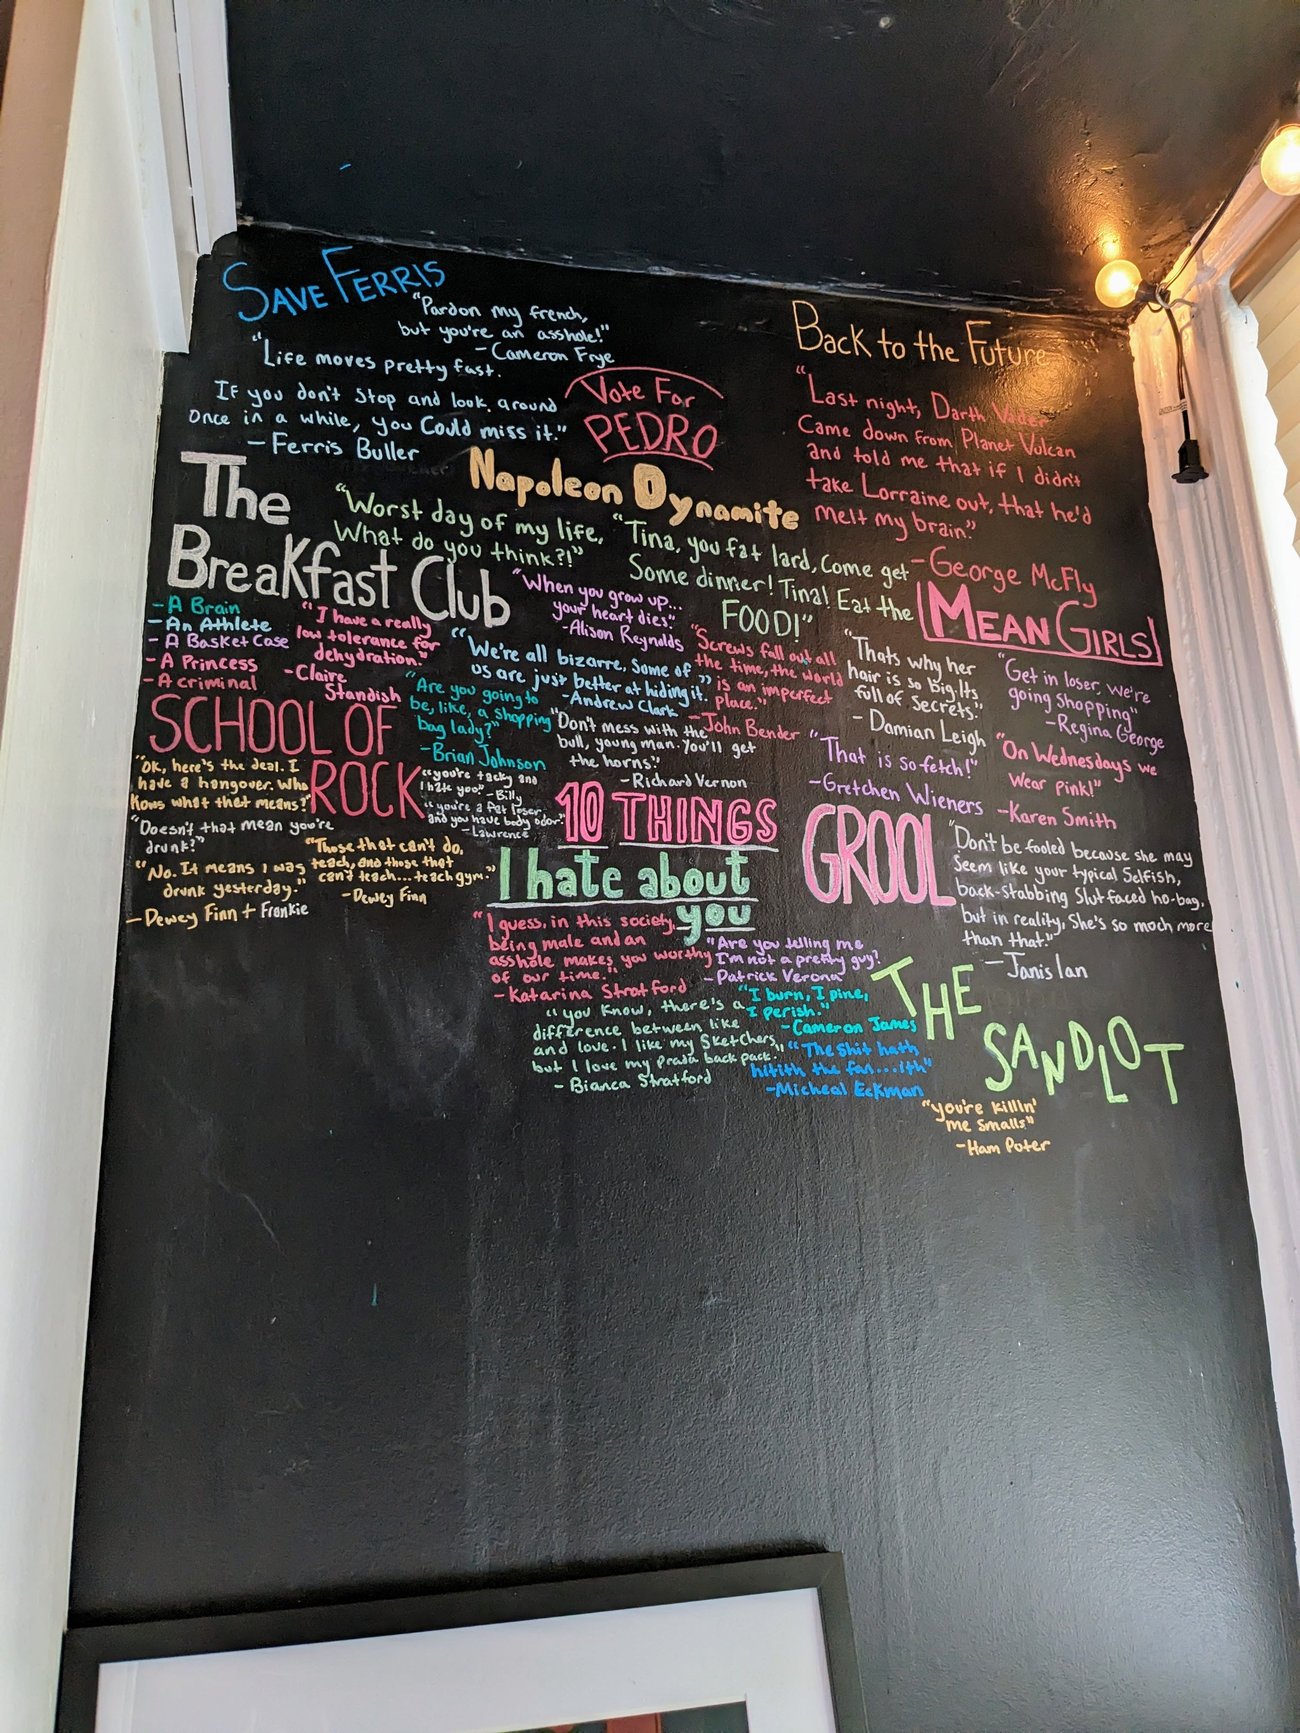 SAVE FERRIS
"Pardon my french,
but you're an asshole!"
- Cameron Frye
"Life moves pretty fast.
If you don't stop and look around
once in a while, you could miss it."
- Ferris Buller
Vote For
PEDRO
Napoleon Dynamite
"Worst day of my life,
What do you think?!"
"Tina, you fat lard, come get
Some dinner! Tina! Eat the
FOOD!"
Back to the Future
"Last night, Darth Vader
Came down from Planet Vulcan
and told me that if I didn't
take Lorraine out, that he'd
melt my brain."
- George McFly
The
Breakfast Club
- A Brain
- An Athlete
- A Basket Case
- A Princess
- A criminal
"I have a really
low tolerance for
dehydration."
- Claire
Standish
"When you grow up...
your heart dies."
- Alison Reynolds
"We're all bizarre. Some of
us are just better at hiding it."
- Andrew Clark
"Screws fall out all
the time, the world
is an imperfect
place."
- John Bender
"Are you going to
be, like, a shopping
bag lady?"
- Brian Johnson
"Don't mess with the
bull, young man. You'll get
the horns."
- Richard Vernon
MEAN GIRLS
"Thats why her
hair is so big. Its
full of secrets."
- Damian Leigh
"Get in loser, we're
going shopping"
- Regina George
"That is so fetch!"
- Gretchen Wieners
"On Wednesdays we
wear pink!"
- Karen Smith
GROOL
"Don't be fooled because she may
seem like your typical selfish,
back-stabbing slut faced ho-bag,
but in reality, she's so much more
than that."
- Janis Ian
SCHOOL OF
ROCK
"OK, here's the deal. I
have a hangover. Who
knows what that means?"
"Doesn't that mean you're
drunk?"
"No. It means I was
drunk yesterday."
- Dewey Finn + Frankie
"you're tacky and
I hate you" - Billy
"you're a fat loser
and you have body odor."
- Lawrence
"Those that can't do,
teach, and those that
can't teach... teach gym."
- Dewey Finn
10 THINGS
I hate about
you
"I guess, in this society,
being male and an
asshole makes you worthy
of our time."
- Katarina Stratford
"Are you telling me
I'm not a pretty guy?
- Patrick Verona
"I burn, I pine,
I perish."
- Cameron James
"you know, there's a
difference between like
and love. I like my Sketchers,
but I love my prada back pack."
- Bianca Stratford
"The shit hath
hitith the fan...ith"
- Micheal Eckman
THE
SANDLOT
"you're killin'
me smalls"
- Ham Poter